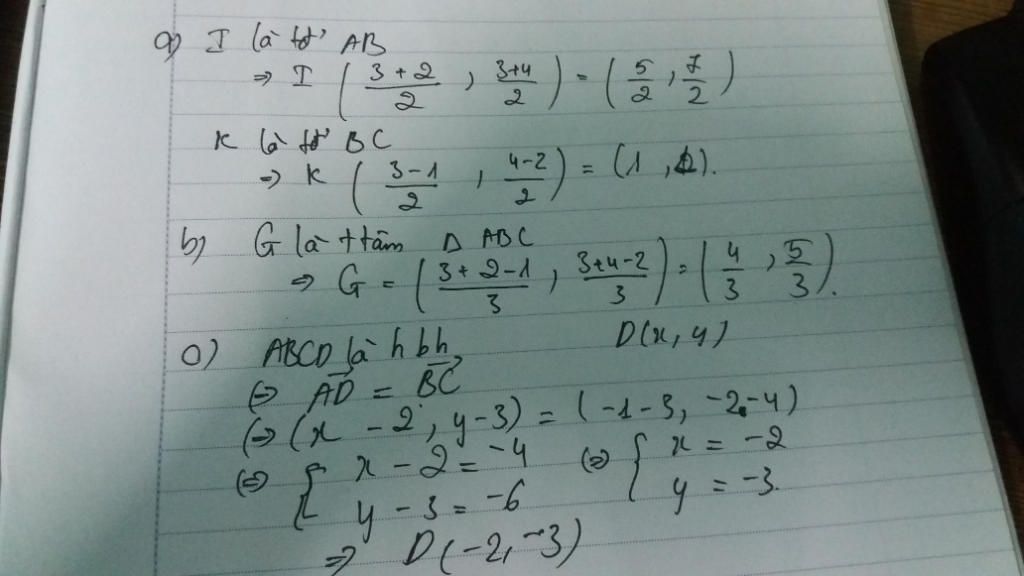 a) I là tđ' AB
⇒ I ( (3+2)/2 , (3+4)/2 ) = ( 5/2 , 7/2 )
K là tđ' BC
⇒ K ( (3-1)/2 , (4-2)/2 ) = (1 , 1).
b) G là ttâm Δ ABC
⇒ G = ( (3+2-1)/3 , (3+4-2)/3 ) = ( 4/3 , 5/3 ).
c) ABCD là hbh D(x, y)
⇔ AD = BC
⇔ (x - 2, y-3) = (-1-3, -2-4)
⇔ { x - 2 = -4 ⇔ { x = -2
y - 3 = -6 y = -3
⇒ D(-2, -3)